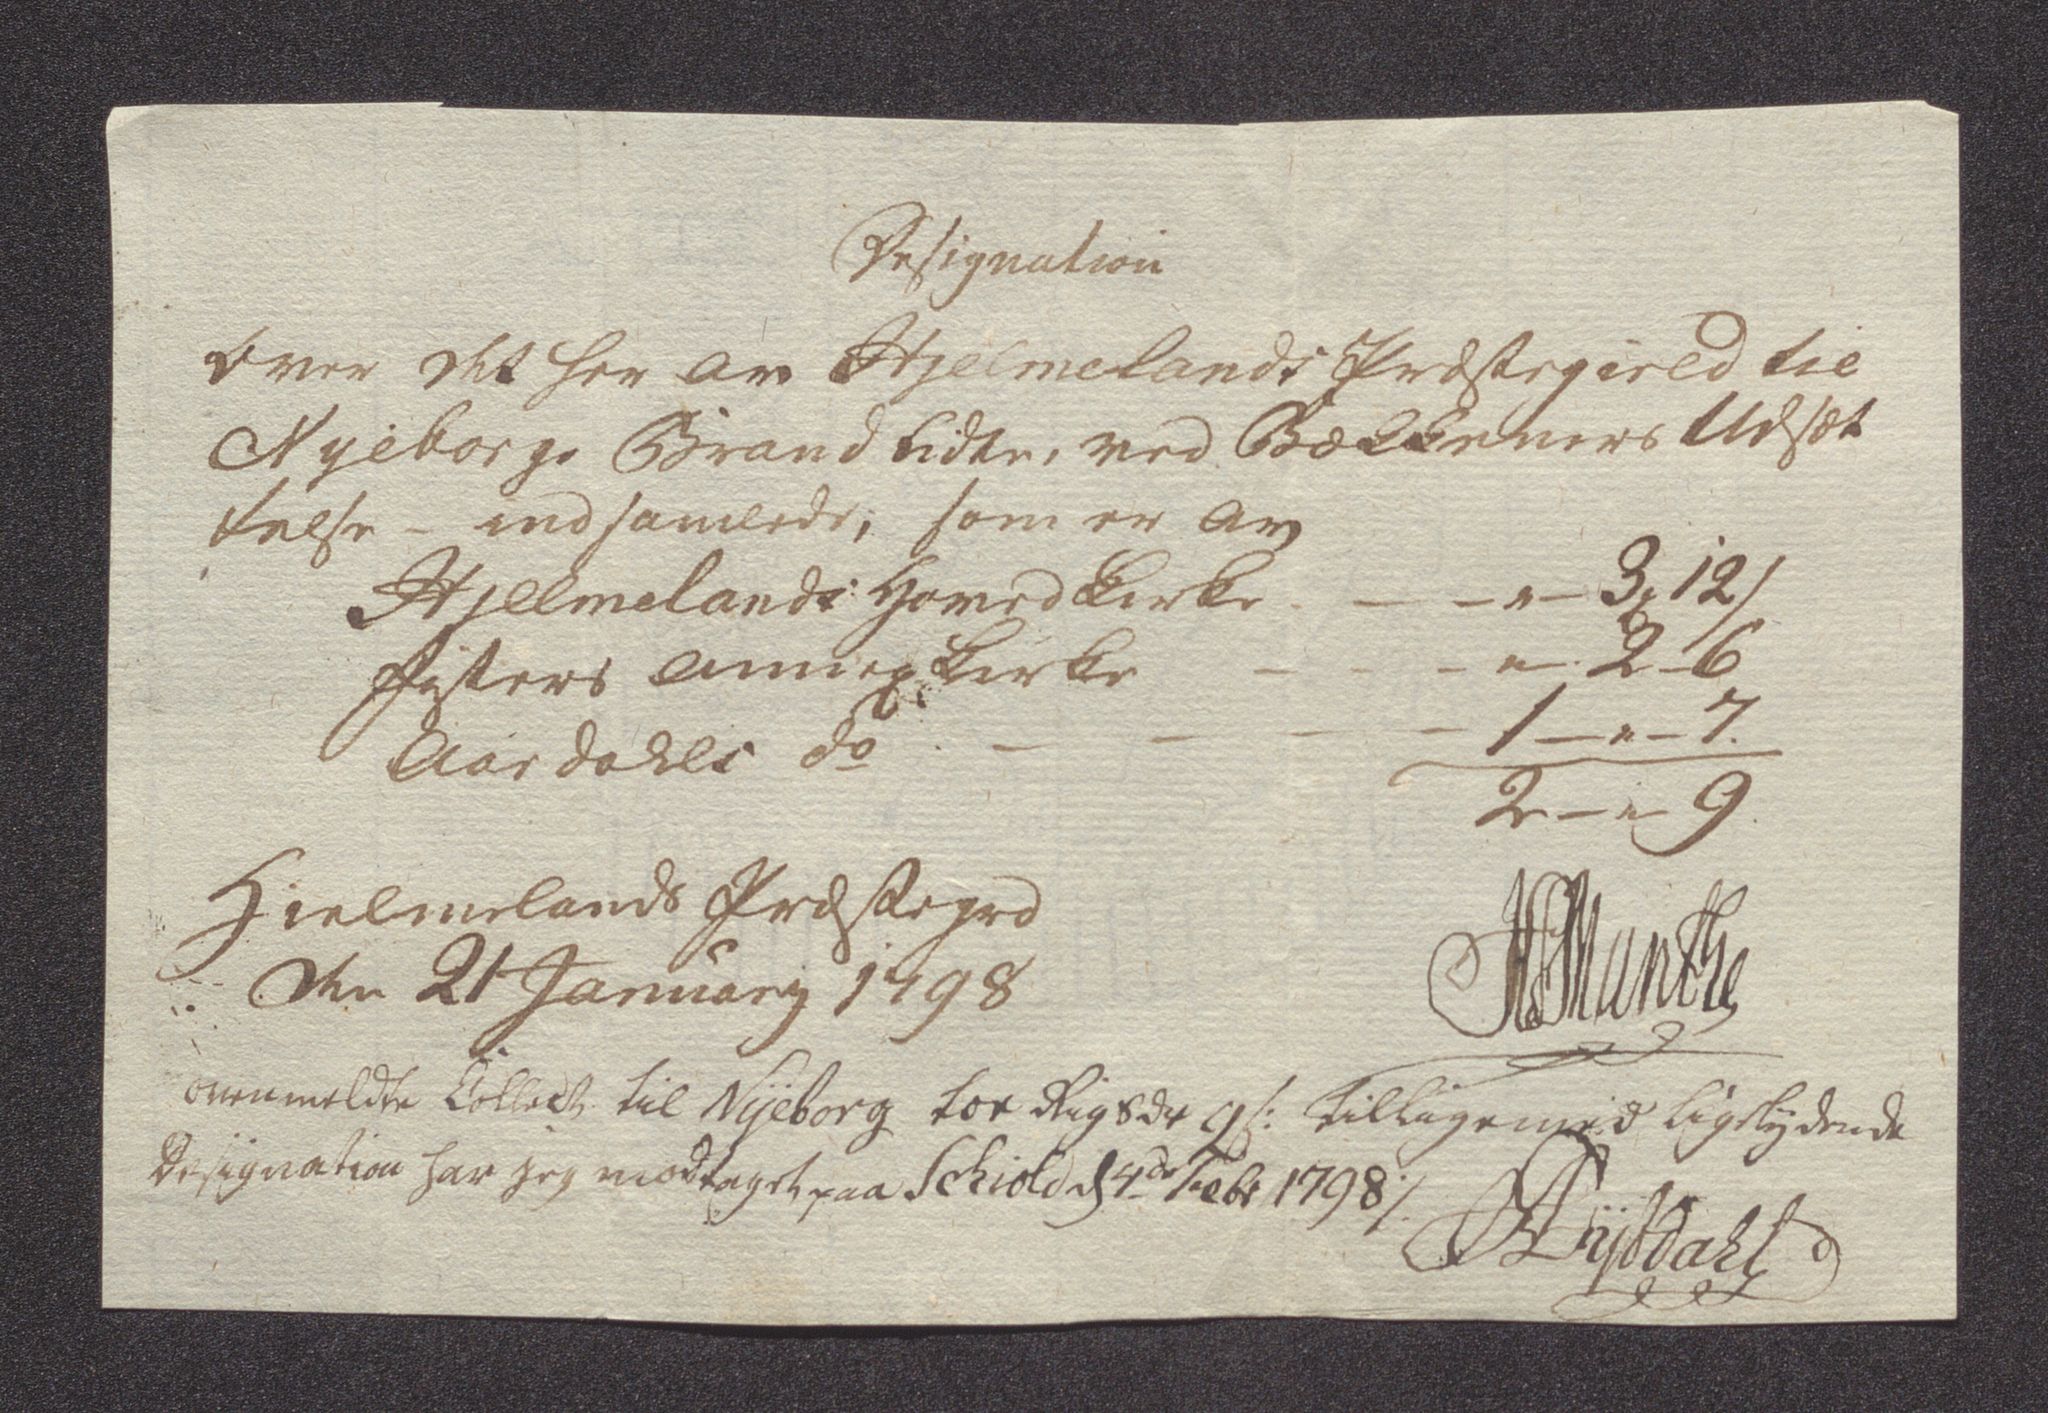 Designation
over det her av Hjelmelands Præstegield til
Nyeborgs Brandlidte, ved Bækkeners Udsæt
telse - indsamlede, som er av
Hjelmelands Hovedkirke - - „ - 3, 12/
Fisters Annexkirke - - - „ - 2 - 6
Aardahls do - - - - 1 - „ - 7.
2 - „ - 9
Hielmelands Præstegrd
den 21 January 1798
Munthe
ovenmeldte Collect til Nyeborg toe Rigsdr 9 s: tilligemed ligelydende
Designation har jeg modtaget paa Schiold d 4de Febr 1798 /.